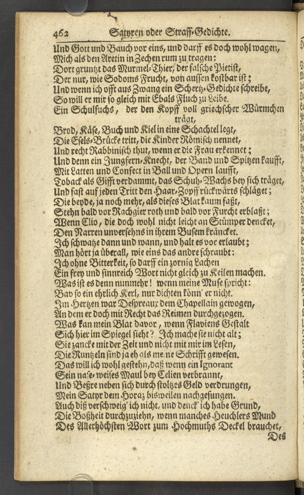 462 Satyren oder Straff-Gedichte.
Und Gott und Bauch vor eins, und darff es doch wohl wagen,
Mich als den Aretin in Zechen rum zu tragen:
Dort gruntzt das Murmel-Thier, der falsche Pietist,
Der nur, wie Sodoms Frucht, von aussen kostbar ist;
Und wenn ich offt aus Zwang ein Schertz-Gedichte schreibe,
So will er mir so gleich mit Ebals Fluch zu Leibe.
Ein Schulfuchs, der den Kopff voll griechscher Würmchen
trägt,
Brod, Käse, Buch und Kiel in eine Schachtel legt,
Die Esels-Brücke tritt, die Kinder Römisch nennet,
Und recht Rabbinisch thut, wenn er die Frau erkennet;
Und denn ein Jungfern-Knecht, der Band und Spitzen kaufft,
Mit Latten und Confect in Ball und Opern laufft,
Toback als Gifft verdammt, das Schuh-Wachs bey sich träget,
Und fast auf jeden Tritt den Haar-Zopff rückwärts schläget;
Die beyde, ja noch mehr, als dieses Blat kaum faßt,
Stehn bald vor Rachgier roth und bald vor Furcht erblaßt;
Wenn Clio, die doch wohl nicht leicht an Stümper dencket,
Den Narren unversehns in ihrem Busem kräncket.
Ich schwatze dann und wann, und halt es vor erlaubt;
Man hört ja überall, wie eins das andre schraubt:
Ich ohne Bitterkeit, so darff ein zornig Lachen
Ein frey und sinnreich Wort nicht gleich zu Keilen machen.
Was ist es denn nunmehr! wenn meine Muse spricht:
Bav so ein ehrlich Kerl, nur dichten könn' er nicht.
Im Hertzen war Despreaux dem Chapellain gewogen,
An dem er doch mit Recht das Reimen durchgezogen.
Was kan mein Blat davor, wenn Flaviens Gestalt
Sich hier im Spiegel sieht? Ich mache sie nicht alt;
Sie zancke mit der Zeit und nicht mit mir im Lesen,
Die Runtzeln sind ja eh als meine Schrifft gewesen.
Das will ich wohl gestehn, daß wenn ein Ignorant
Sein nase-weises Maul bey Celten verbrannt,
Und Beßre neben sich durch stoltzes Geld verdrungen,
Mein Satyr dem Horaz bisweilen nachgesungen.
Auch diß verschweig' ich nicht, und denck' ich habe Grund,
Die Boßheit durchzuziehn, wenn manches Heuchlers Mund
Des Allerhöchsten Wort zum Hochmuths Deckel brauchet,
Des